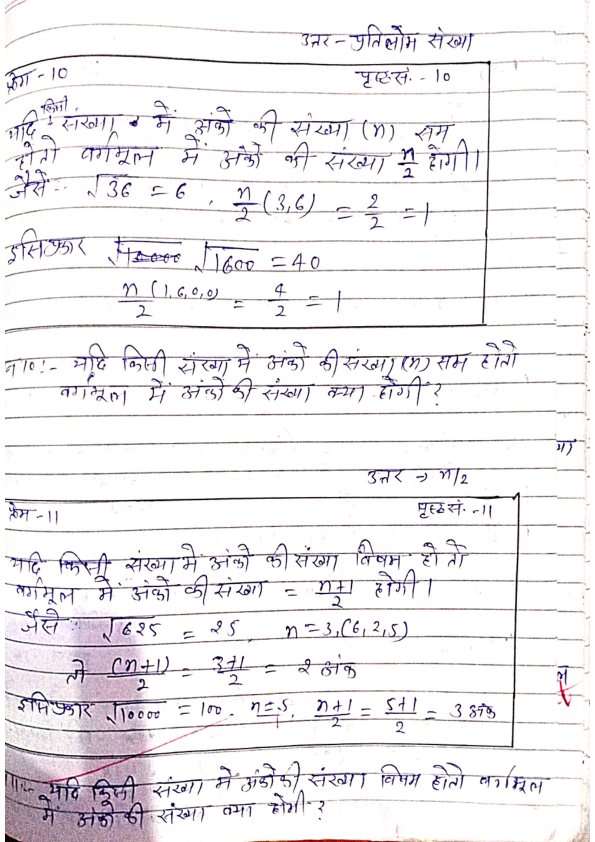 उत्तर - प्रतिलोम संख्या
फ्रेम - 10 पृष्ठ सं. - 10
यदि किसी संख्या में अंको की संख्या (n) सम
होतो वर्गमूल में अंको की संख्या n/2 होगी।
जैसे - √36 = 6 . n/2 (3,6) = 2/2 = 1
इसिप्रकार √1600 = 40
n (1,6,0,0)/2 = 4/2 = 1
10:- यदि किसी संख्या में अंको की संख्या (n) सम होतो
वर्गमूल में अंको की संख्या क्या होगी?
उत्तर → n/2
फ्रेम - 11 पृष्ठ सं. - 11
यदि किसी संख्या में अंको की संख्या विषम हो तो
वर्गमूल में अंको की संख्या = n+1/2 होगी।
जैसे √625 = 25, n = 3, (6,2,5)
तो (n+1)/2 = 3+1/2 = 2 अंक
इसिप्रकार √10000 = 100. n=5. n+1/2 = 5+1/2 = 3 अंक
11:- यदि किसी संख्या में अंको की संख्या विषम होतो वर्गमूल
में अंको की संख्या क्या होगी?